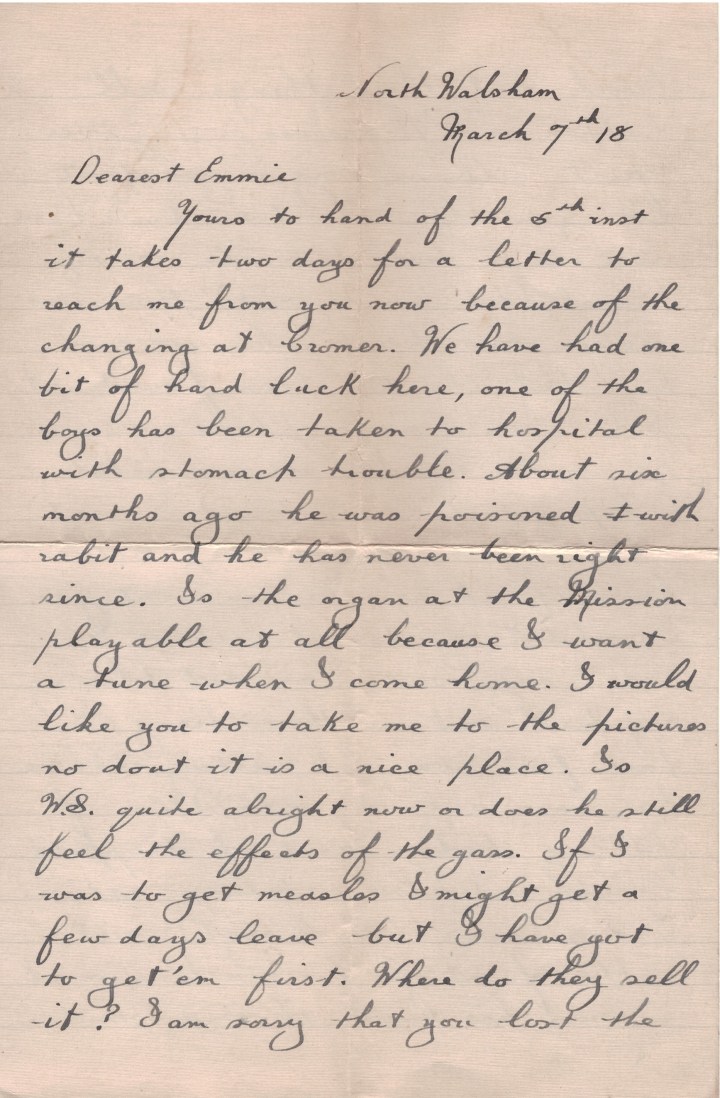 North Walsham
March 7th 18
Dearest Emmie
Yours to hand of the 5th inst
it takes two days for a letter to
reach me from you now because of the
changing at Cromer. We have had one
bit of hard luck here, one of the
boys has been taken to hospital
with stomach trouble. About six
months ago he was poisoned with
rabit and he has never been right
since. Is the organ at the Mission
playable at all because I want
a tune when I come home. I would
like you to take me to the pictures
no dout it is a nice place. Is
W.S. quite alright now or does he still
feel the effects of the gass. If I
was to get measles I might get a
few days leave but I have got
to get 'em first. Where do they sell
it? I am sorry that you lost the